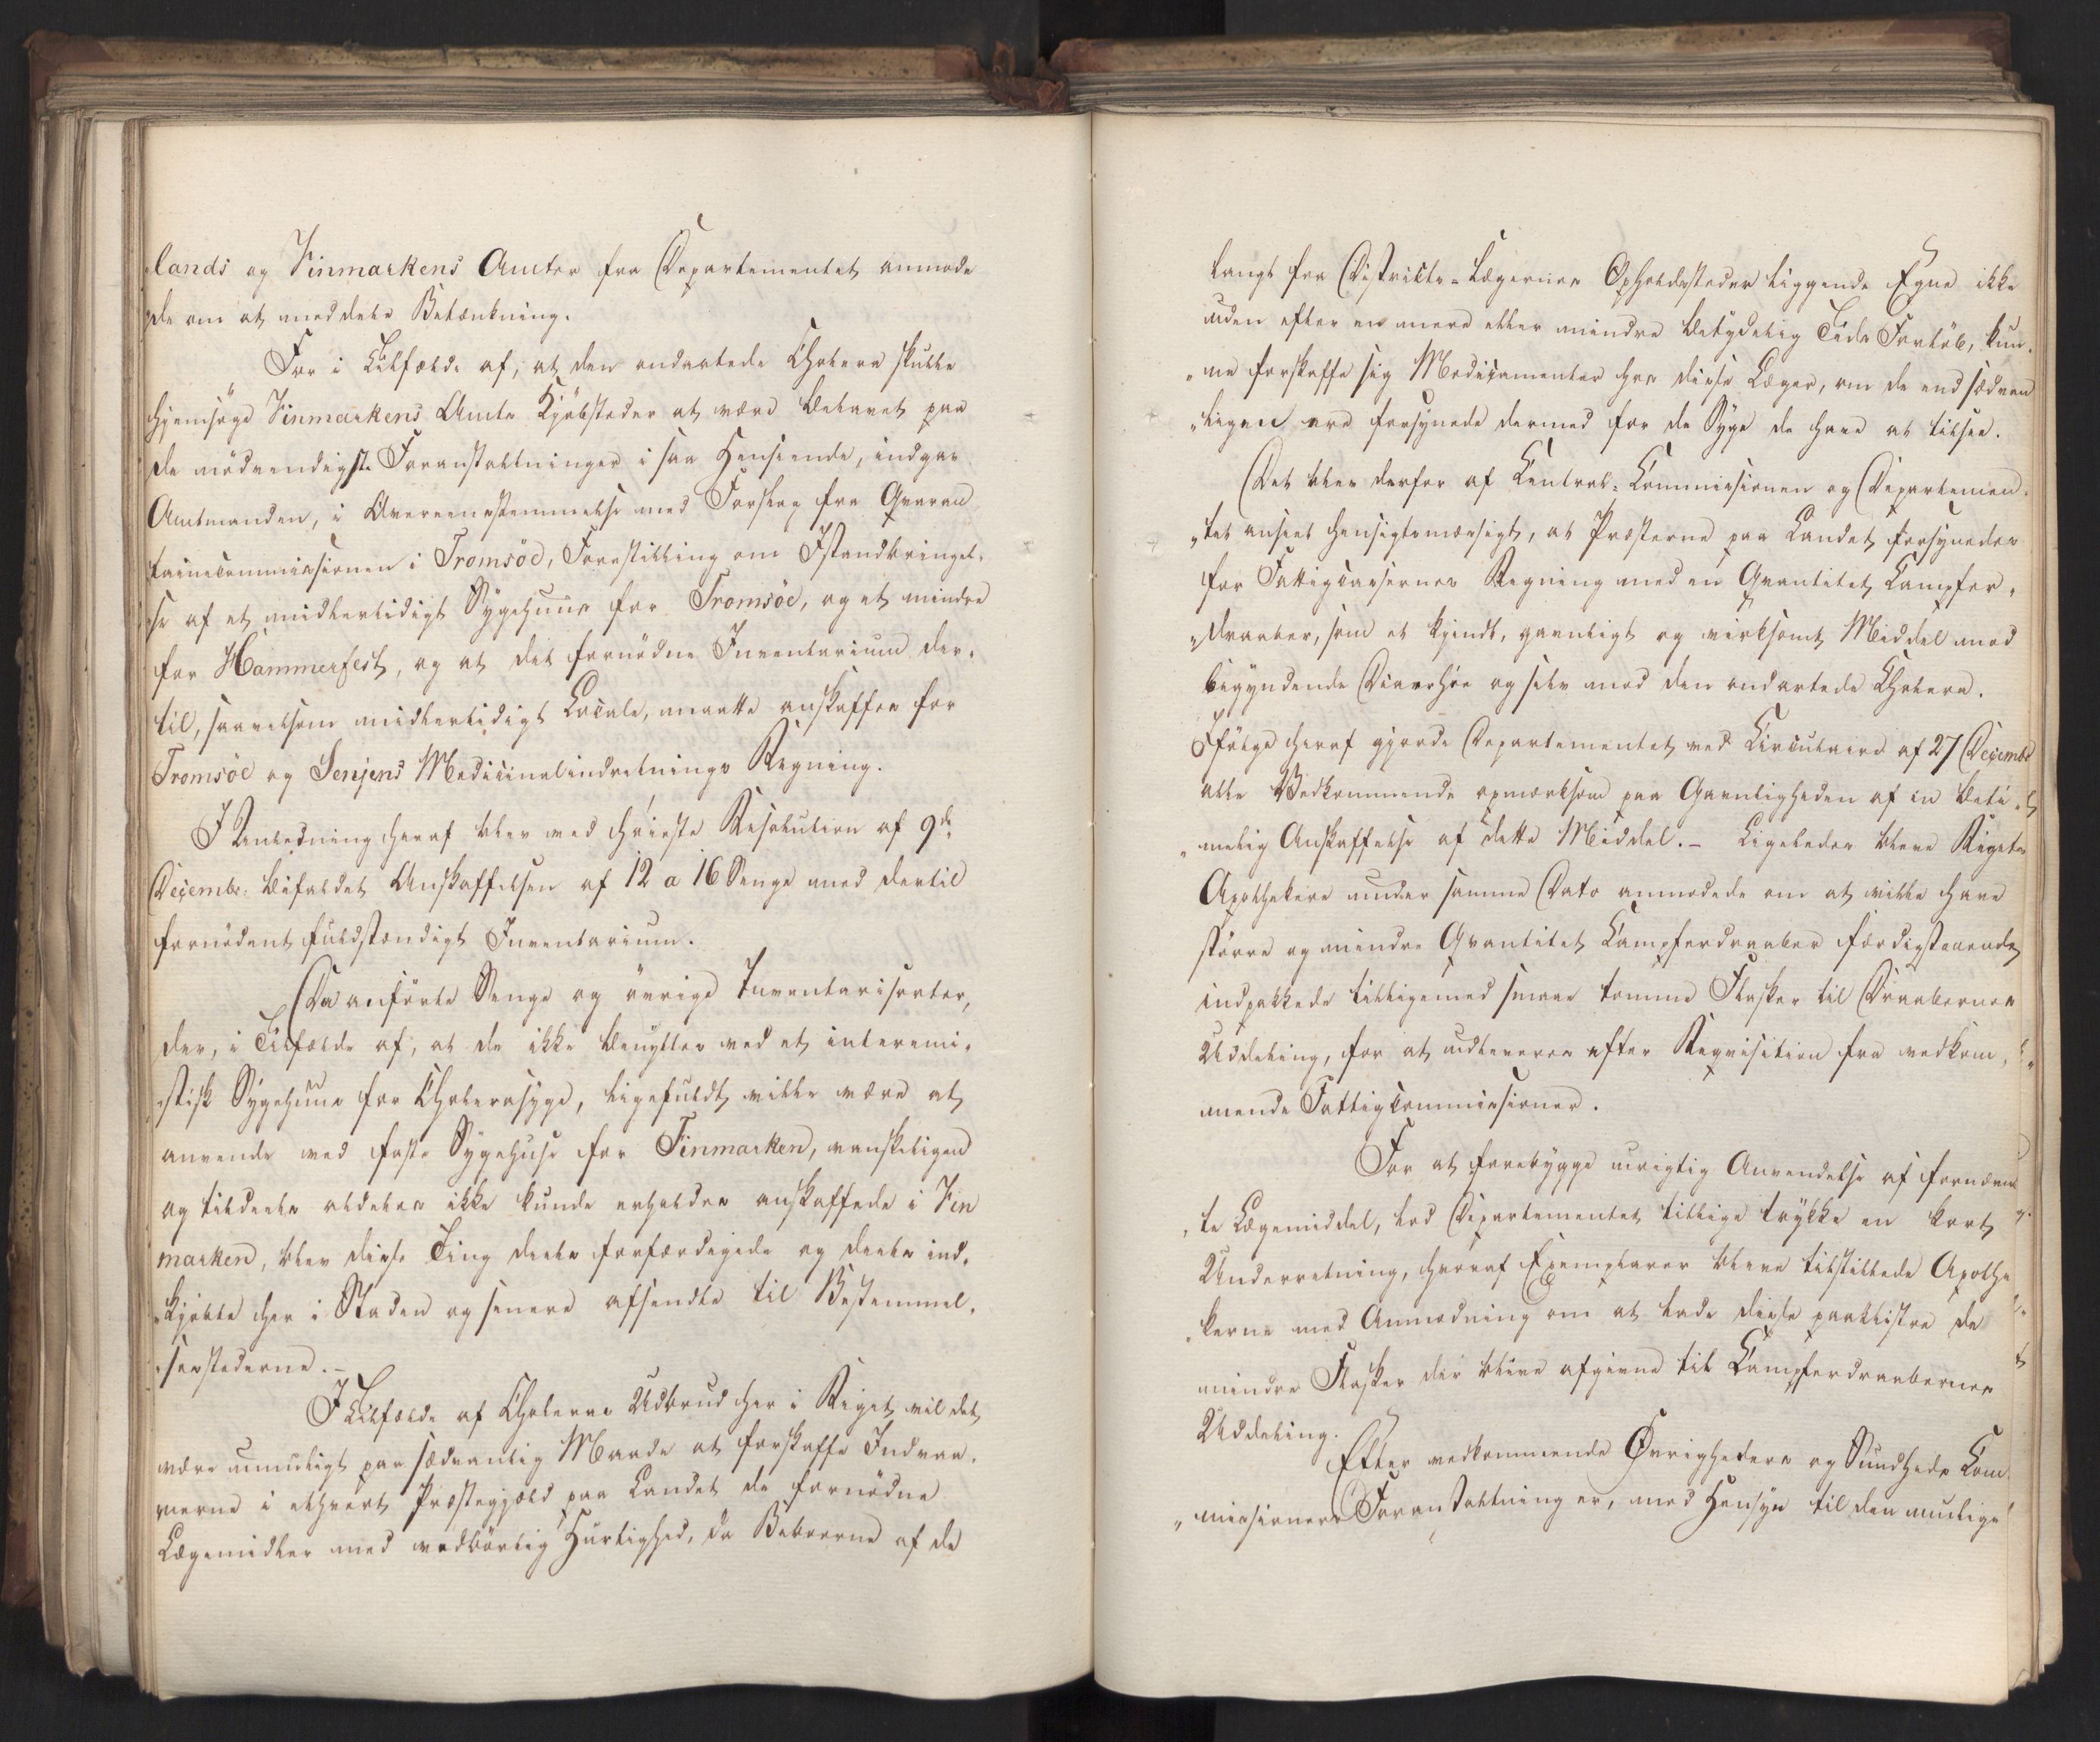 lands og Finmarkens Amter fra Departementet anmode
de om at meddele Betænkning.
For i Tilfælde af, at den ondartede Cholera skulle
hjemsöge Finmarkens Amts Kjöbsteder at være betavet paa
de nödvendigste Foranstaltninger i saa Henseende, indgav
Amtmanden, i Overeensstemmelse med Forslag fra Qvaran
tainecommissionen i Tromsöe, Forestilling om Istandbringel-
se af et midlertidigt Sygehuus for Tromsöe, og et mindre
for Hammerfest, og at det fornödne Inventarium der-
til, saavelsom midlertidigt Locale, maatte anskaffes for
Tromsöe og Senjens Medicinalindretnings Regning.
I Anledning heraf blev ved höieste Resolution af 9de
Decembr: bifaldet Anskaffelsen af 12 a 16 Senge med dertil
fornödent fuldstændigt Inventarium.
Da anförte Senge og övrige Inventarisorter,
der, i Tilfælde af, at de ikke benyttes ved et interimi-
stisk Sygehuus for Cholerasyge, ligefuldt ville være at
anvende ved faste Sygehuse for Finmarken, vanskeligen
og tildeels aldeles ikke kunde erholdes anskaffede i Fin
marken, blev disse Ting deels forfærdigede og deels ind-
kjöbte her i Staden og senere afsendte til Bestemmel-
sesstederne.-
I Tilfælde af Choleras Udbrud her i Riget vil det
være umuligt paa sædvanlig Maade at forskaffe Indvaa-
nerne i ethvert Præstegjæld paa Landet de fornödne
Lægemidler med vedbörlig Hurtighed, da Beboerne af de
langt fra Districts-Lægernes Opholdssteder liggende Egne ikke
uden efter en mere eller mindre betydelig Tids Forløb, kun-
ne forskaffe sig Medicamenter hos disse Læger, om de end sædvan
ligen ere forsynede dermed for de Syge de have at tilsee.
Det blev derfor af Central-Commissionen og Departemen-
tet anseet hensigtsmæssigt, at Præsterne paa Landet forsynedes
for Fattigcassernes Regning med en Qvantitet Campfer-
draaber, som et kjendt, gavnligt og virksomt Middel mod
begyndende Diarrhöe og selv mod den ondartede Cholera.
Ifölge heraf gjorde Departementet ved Circulaire af 27 Decembr
alle Vedkommende opmærksom paa Gavnligheden af en beti-
melig Anskaffelse af dette Middel.- Ligeledes bleve Rigets
Apothekere under samme Dato anmodede om at ville have
större og mindre Qvantitet Campferdraaber færdigstaaende
indpakkede tilligemed smaae tomme Flasker til Draabernes
Uddeling, for at udleveres efter Reqvisition fra vedkom-
mende Fattigcommissioner.
For at forebygge urigtig Anvendelse af fornævn
te Lægemiddel, lod Departementet tillige trykke en kort
Underretning, hvoraf Exemplarer bleve tilstillede Apothe
kerne med Anmodning om at lade disse paaklistre de
mindre Flasker der bleve afgivne til Campferdraabernes
Uddeling.
Efter vedkommende Øvrigheders og Sundheds Com
missioners Foranstaltning er, med Hensyn til den mulige